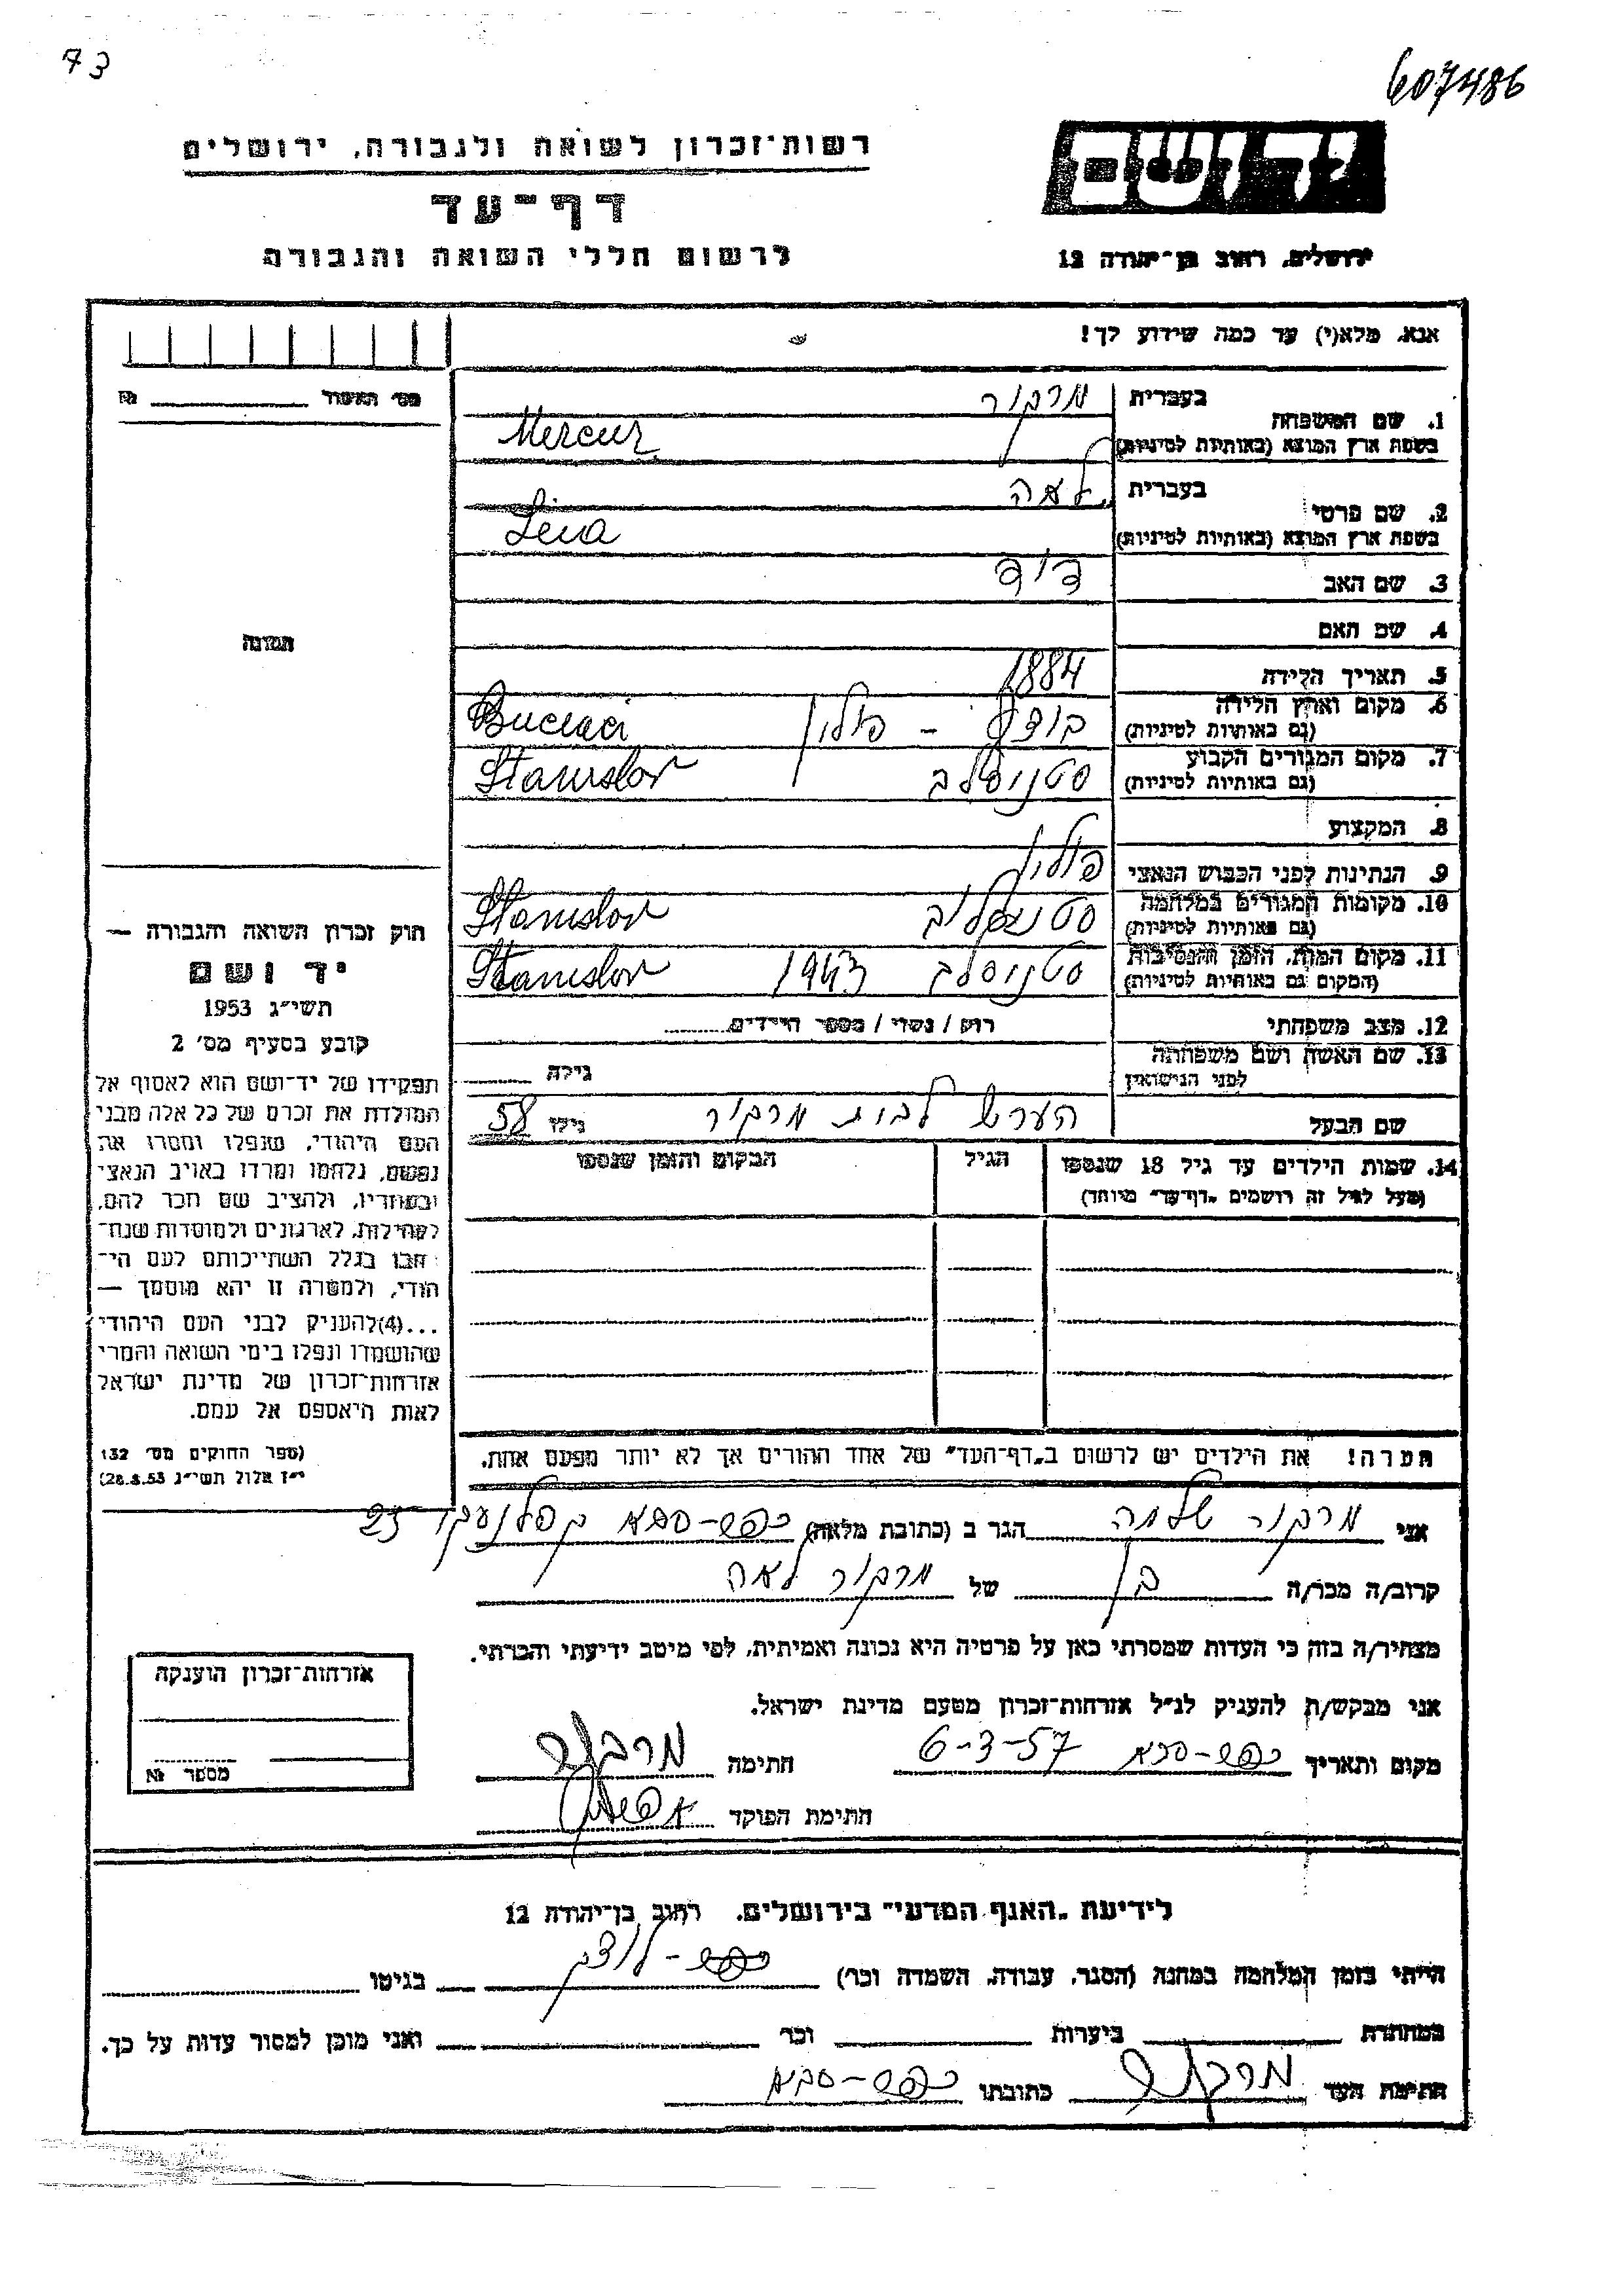 73
607486
יד ושם
רשות־זכרון לשואה ולגבורה, ירושלים
דף־עד
לרשום חללי השואה והגבורה
ירושלים, רחוב בן־יהודה 12
אנא, מלא(י) עד כמה שידוע לך!
מס׳ האשור № 
1. שם המשפחה
בעברית מרקור
בשפת ארץ המוצא (באותיות לטיניות) Mercur
2. שם פרטי
בעברית לאה
בשפת ארץ המוצא (באותיות לטיניות) Leia
3. שם האב דוד
4. שם האם
5. תאריך הלידה 1884
6. מקום וארץ הלידה
(גם באותיות לטיניות) פולין Buciaci
7. מקום המגורים הקבוע
(גם באותיות לטיניות) סטניסלב Stanislav
8. המקצוע
9. הנתינות לפני הכבוש הנאצי פולין
10. מקומות המגורים במלחמה
(גם באותיות לטיניות) סטניסלב Stanislav
11. מקום המות, הזמן והנסיבות
(המקום גם באותיות לטיניות) סטניסלב 1943 Stanislav
12. מצב משפחתי רוק / נשוי / מספר הילדים
13. שם האשה ושם משפחתה
לפני הנישואין גילה
שם הבעל לבית מרקור גילו 58
14. שמות הילדים עד גיל 18 שנספו
(מעל לגיל זה רושמים „דף־עד" מיוחד)
הגיל
המקום והזמן שנספו
הערה! את הילדים יש לרשום ב„דף־העד" של אחד ההורים אך לא יותר מפעם אחת.
התמונה
חוק זכרון השואה והגבורה —
יד ושם
תשי״ג 1953
קובע בסעיף מס׳ 2
תפקידו של יד־ושם הוא לאסוף אל
המולדת את זכרם של כל אלה מבני
העם היהודי, שנפלו ומסרו את
נפשם, נלחמו ומרדו באויב הנאצי
ובעוזריו, ולהציב שם וזכר להם,
לקהילות, לארגונים ולמוסדות שנח־
רבו בגלל השתייכותם לעם הי־
הודי, ולמטרה זו יהא מוסמך —
...(4) להעניק לבני העם היהודי
שהושמדו ונפלו בימי השואה והמרי
אזרחות־זכרון של מדינת ישראל
לאות היאספם אל עמם.
(ספר החוקים מס׳ 132
י״ז אלול תשי״ג 28.8.53)
אני מרקור שלמה הגר ב (כתובת מלאה) כפר־סבא
קרוב/ה מכר/ה בן של מרקור לאה
מצהיר/ה בזה כי העדות שמסרתי כאן על פרטיה היא נכונה ואמיתית, לפי מיטב ידיעתי והכרתי.
אני מבקש/ת להעניק לנ״ל אזרחות־זכרון מטעם מדינת ישראל.
מקום ותאריך כפר־סבא 6-3-57 חתימה מרקור
חתימת הפוקד
אזרחות־זכרון הוענקה
מספר №
לידיעת „האגף המדעי" בירושלים, רחוב בן־יהודה 12
הייתי בזמן המלחמה במחנה (הסגר, עבודה, השמדה וכו׳) בגיטו
במחתרת ביערות וכו׳ ואני מוכן למסור עדות על כך.
חתימת העד מרקור כתובתו כפר־סבא